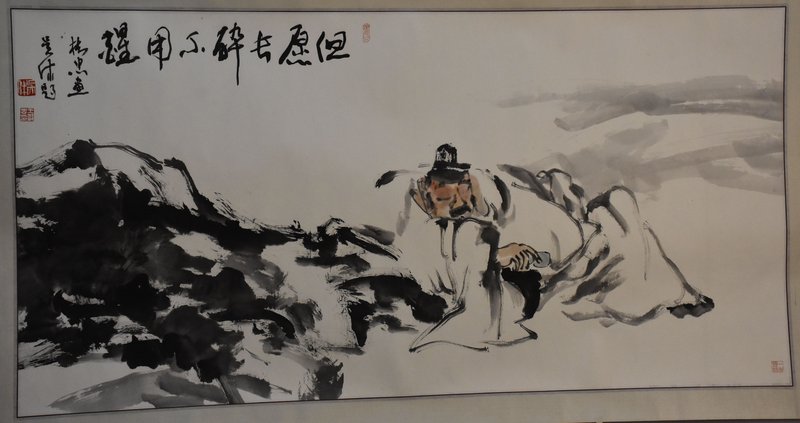 但愿长醉不用醒
忠画
题